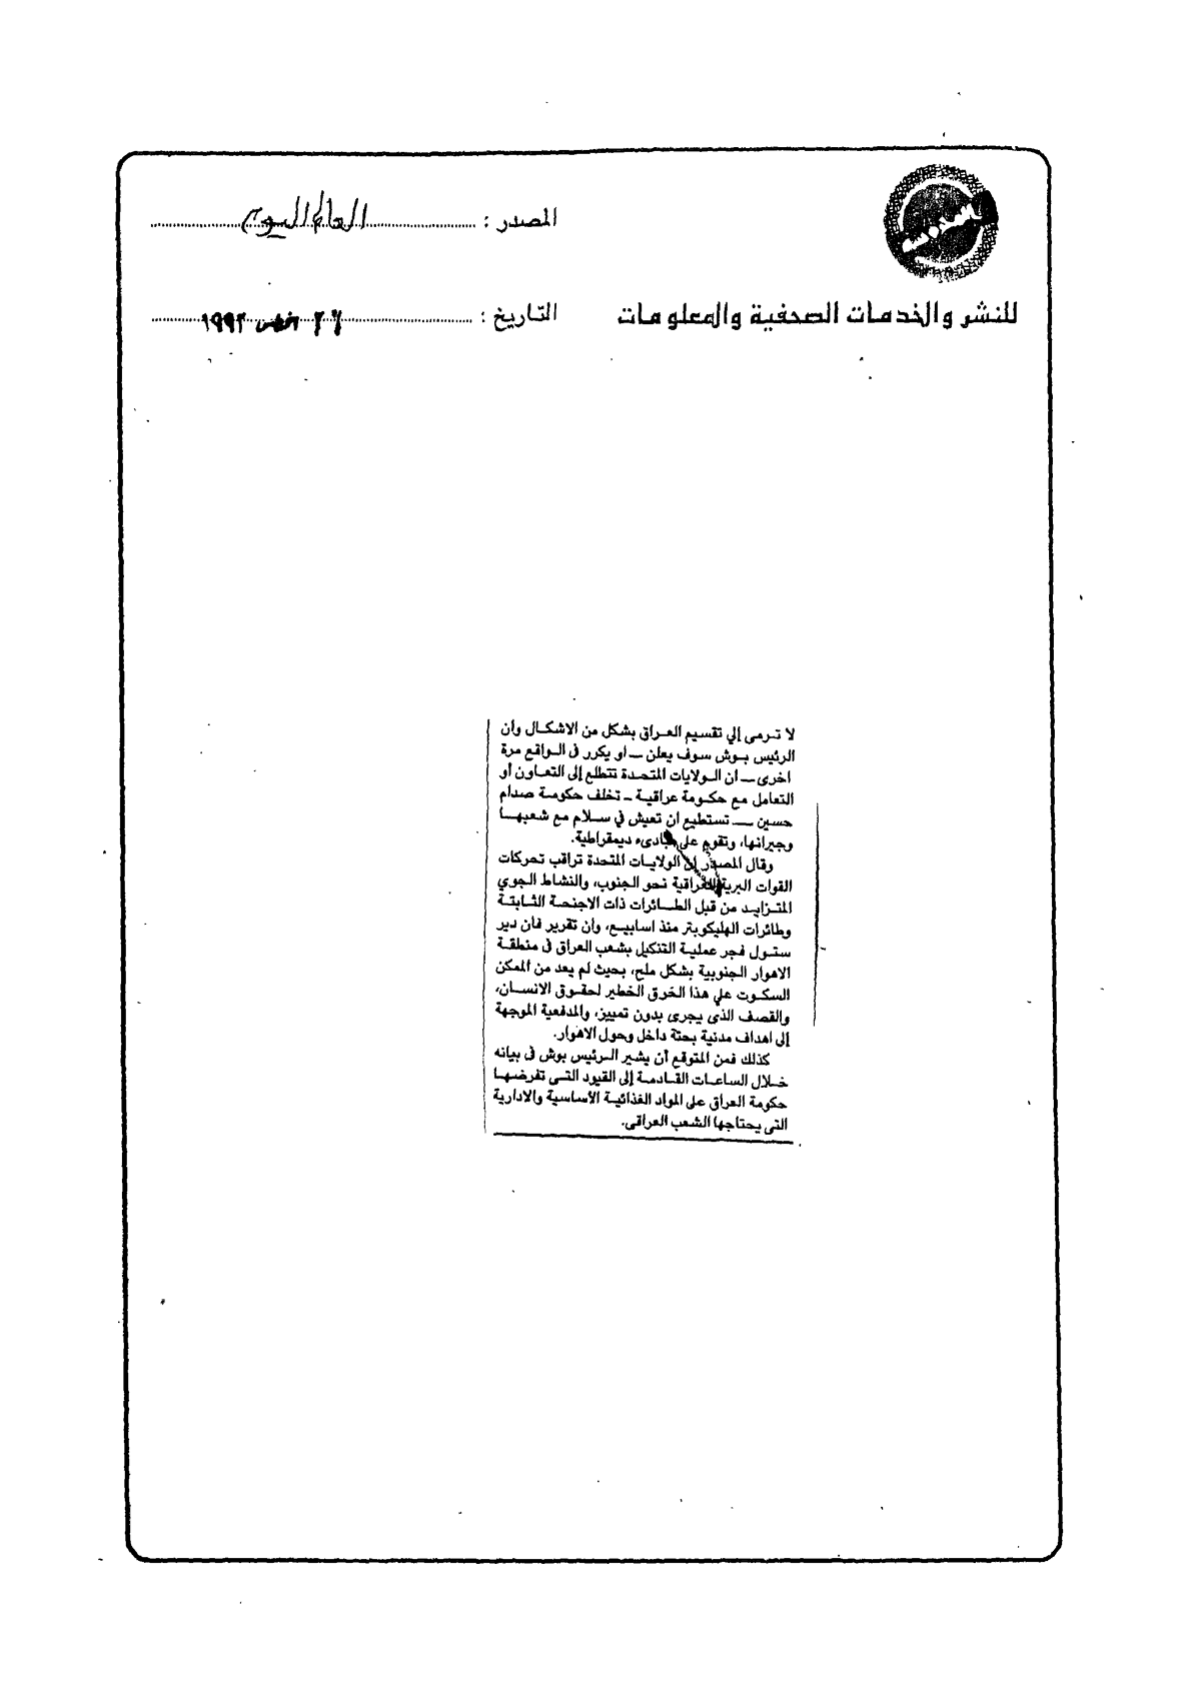 المصدر : العالم اليوم
للنشر والخدمات الصحفية والمعلومات
التاريخ : ٢٦ اغسطس ١٩٩٢
لا ترمى إلي تقسيم العراق بشكل من الاشكال وأن
الرئيس بوش سوف يعلن ــ او يكرر فى الواقع مرة
اخرى ــ ان الولايات المتحدة تتطلع إلى التعاون أو
التعامل مع حكومة عراقية ــ تخلف حكومة صدام
حسين ــ تستطيع ان تعيش في سلام مع شعبها
وجيرانها، وتقوم على مبادىء ديمقراطية.
وقال المصدر إن الولايات المتحدة تراقب تحركات
القوات البرية العراقية نحو الجنوب، والنشاط الجوي
المتزايد من قبل الطائرات ذات الاجنحة الثابتة
وطائرات الهليكوبتر منذ اسابيع، وان تقرير فان دير
ستول فجر عملية التنكيل بشعب العراق فى منطقة
الاهوار الجنوبية بشكل ملح، بحيث لم يعد من الممكن
السكوت علي هذا الخرق الخطير لحقوق الانسان،
والقصف الذى يجرى بدون تمييز، والمدفعية الموجهة
إلى اهداف مدنية بحتة داخل وحول الاهوار.
كذلك فمن المتوقع أن يشير الرئيس بوش فى بيانه
خلال الساعات القادمة إلى القيود التى تفرضها
حكومة العراق على المواد الغذائية الأساسية والادارية
التى يحتاجها الشعب العراقى.